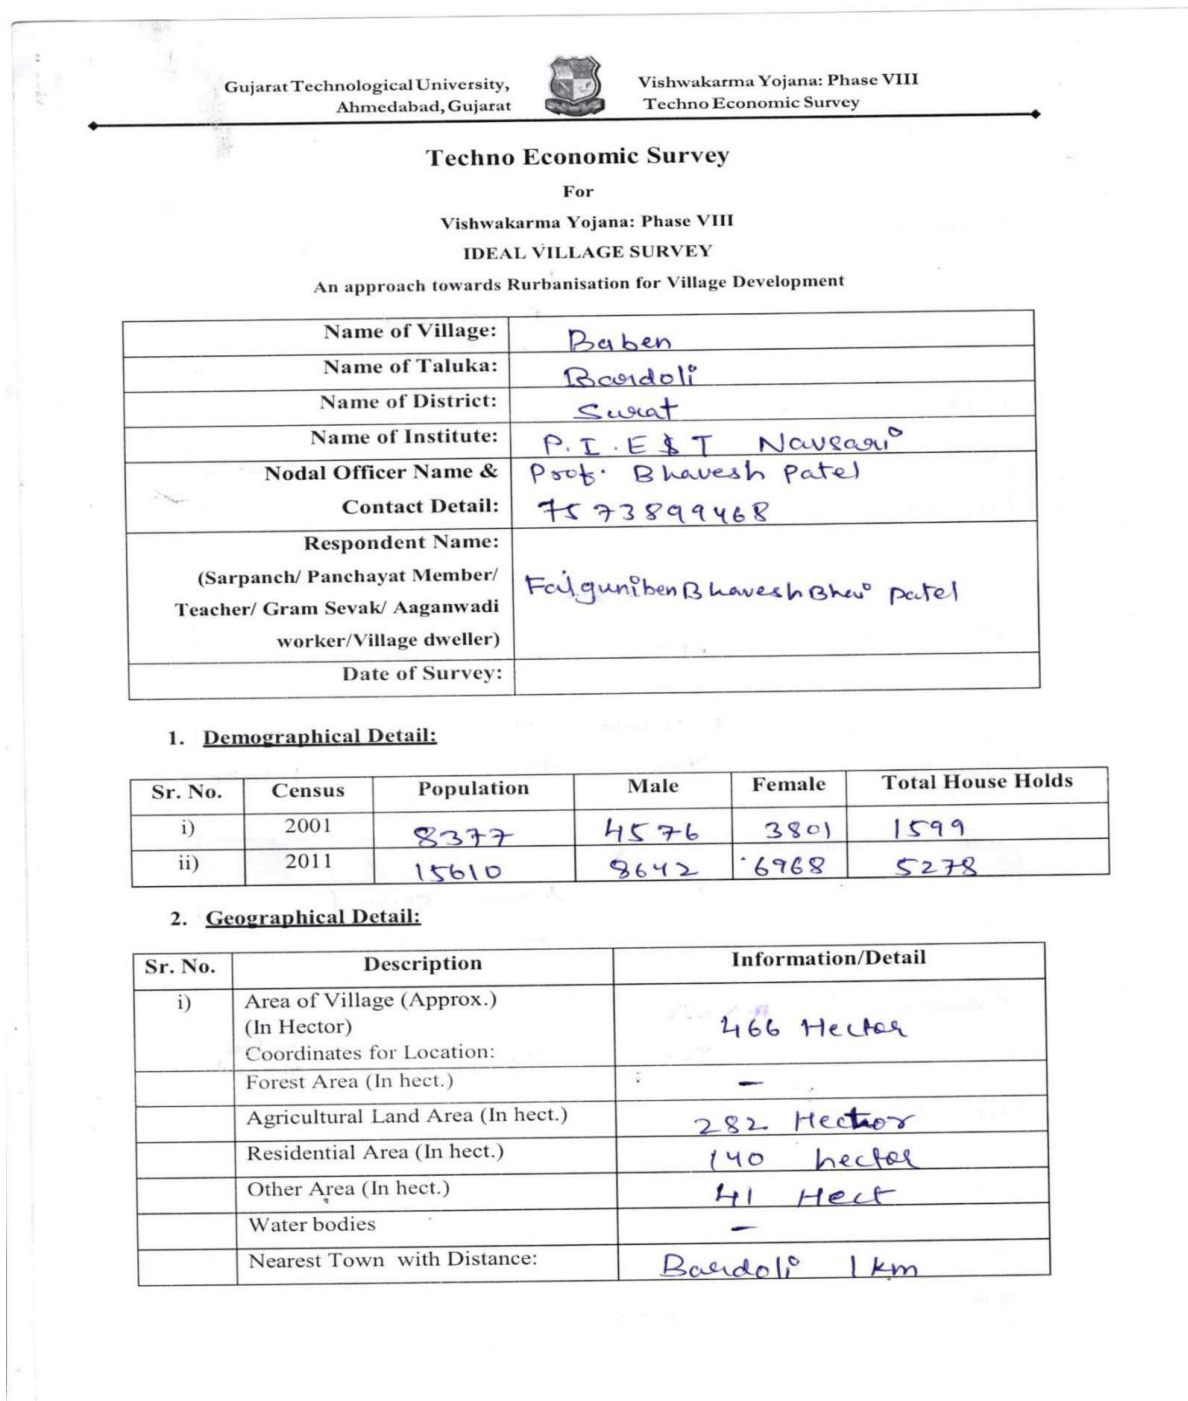 Gujarat Technological University, Vishwakarma Yojana: Phase VIII
Ahmedabad, Gujarat Techno Economic Survey
Techno Economic Survey
For
Vishwakarma Yojana: Phase VIII
IDEAL VILLAGE SURVEY
An approach towards Rurbanisation for Village Development
Name of Village: Baben
Name of Taluka: Bardoli
Name of District: Surat
Name of Institute: P.I.E & T Navsari
Nodal Officer Name & Prof. Bhavesh Patel
Contact Detail: 7573899468
Respondent Name:
(Sarpanch/ Panchayat Member/
Teacher/ Gram Sevak/ Aaganwadi Falguniben BhaveshBhai patel
worker/Village dweller)
Date of Survey:
1. Demographical Detail:
Sr. No. Census Population Male Female Total House Holds
i) 2001 8377 4576 3801 1599
ii) 2011 15610 8642 6968 5278
2. Geographical Detail:
Sr. No. Description Information/Detail
i) Area of Village (Approx.)
(In Hector) 466 Hector
Coordinates for Location:
Forest Area (In hect.) –
Agricultural Land Area (In hect.) 282 Hector
Residential Area (In hect.) 140 hector
Other Area (In hect.) 41 Hect
Water bodies –
Nearest Town with Distance: Bardoli 1 km